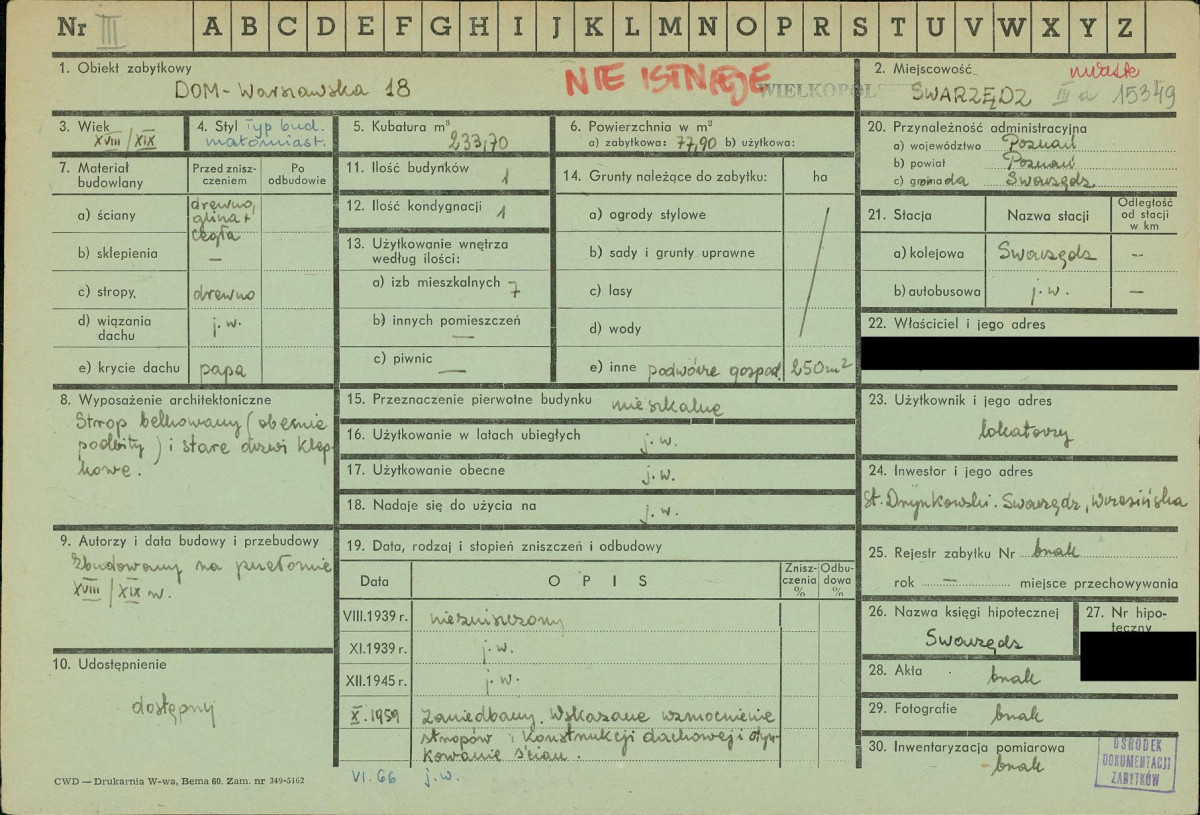 Nr III A B C D E F G H I J K L M N O P R S T U V W X Y Z
1. Obiekt zabytkowy
DOM - Warszawska 18
NIE ISTNIEJE
WIELKOPOLS
2. Miejscowość
miasto
SWARZĘDZ III a 15349
3. Wiek
XVIII/XIX
4. Styl Typ bud.
małomiast.
5. Kubatura m³
233,70
6. Powierzchnia w m²
a) zabytkowa: 77,90 b) użytkowa:
20. Przynależność administracyjna
a) województwo Poznań
b) powiat Poznań
c) gromada Swarzędz
7. Materiał budowlany
Przed zniszczeniem
Po odbudowie
a) ściany drewno, glina + cegła
b) sklepienia —
c) stropy, drewno
d) wiązania dachu j.w.
e) krycie dachu papa
11. Ilość budynków 1
12. Ilość kondygnacji 1
13. Użytkowanie wnętrza
według ilości:
a) izb mieszkalnych 7
b) innych pomieszczeń —
c) piwnic —
14. Grunty należące do zabytku: ha
a) ogrody stylowe
b) sady i grunty uprawne
c) lasy
d) wody
e) inne podwórze gospod. 250 m²
21. Stacja Nazwa stacji Odległość od stacji w km
a) kolejowa Swarzędz —
b) autobusowa j.w. —
22. Właściciel i jego adres
8. Wyposażenie architektoniczne
Strop belkowany (obecnie
podbity) i stare drzwi klep-
kowe.
15. Przeznaczenie pierwotne budynku mieszkalne
16. Użytkowanie w latach ubiegłych j.w.
17. Użytkowanie obecne j.w.
18. Nadaje się do użycia na j.w.
23. Użytkownik i jego adres
lokatorzy
24. Inwestor i jego adres
Swarzędz, Wrzesińska
9. Autorzy i data budowy i przebudowy
Zbudowany na przełomie
XVIII/XIX w.
19. Data, rodzaj i stopień zniszczenia i odbudowy
Data OPIS Zniszczenia % Odbudowa %
VIII.1939 r. niezniszczony
XI.1939 r. j.w.
XII.1945 r. j.w.
X.1959 Zaniedbany. Wskazane wzmocnienie
stropów i konstrukcji dachowej i otyn-
kowanie ścian.
VI.66 j.w.
25. Rejestr zabytku Nr brak
rok — miejsce przechowywania
26. Nazwa księgi hipotecznej
Swarzędz
27. Nr hipoteczny
28. Akta brak
29. Fotografie brak
30. Inwentaryzacja pomiarowa
brak
10. Udostępnienie
dostępny
CWD — Drukarnia W-wa, Bema 60. Zam. nr 349-5162
OŚRODEK
DOKUMENTACJI
ZABYTKÓW